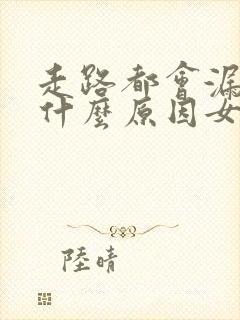 走路都會漏
什麼原因女
陸晴